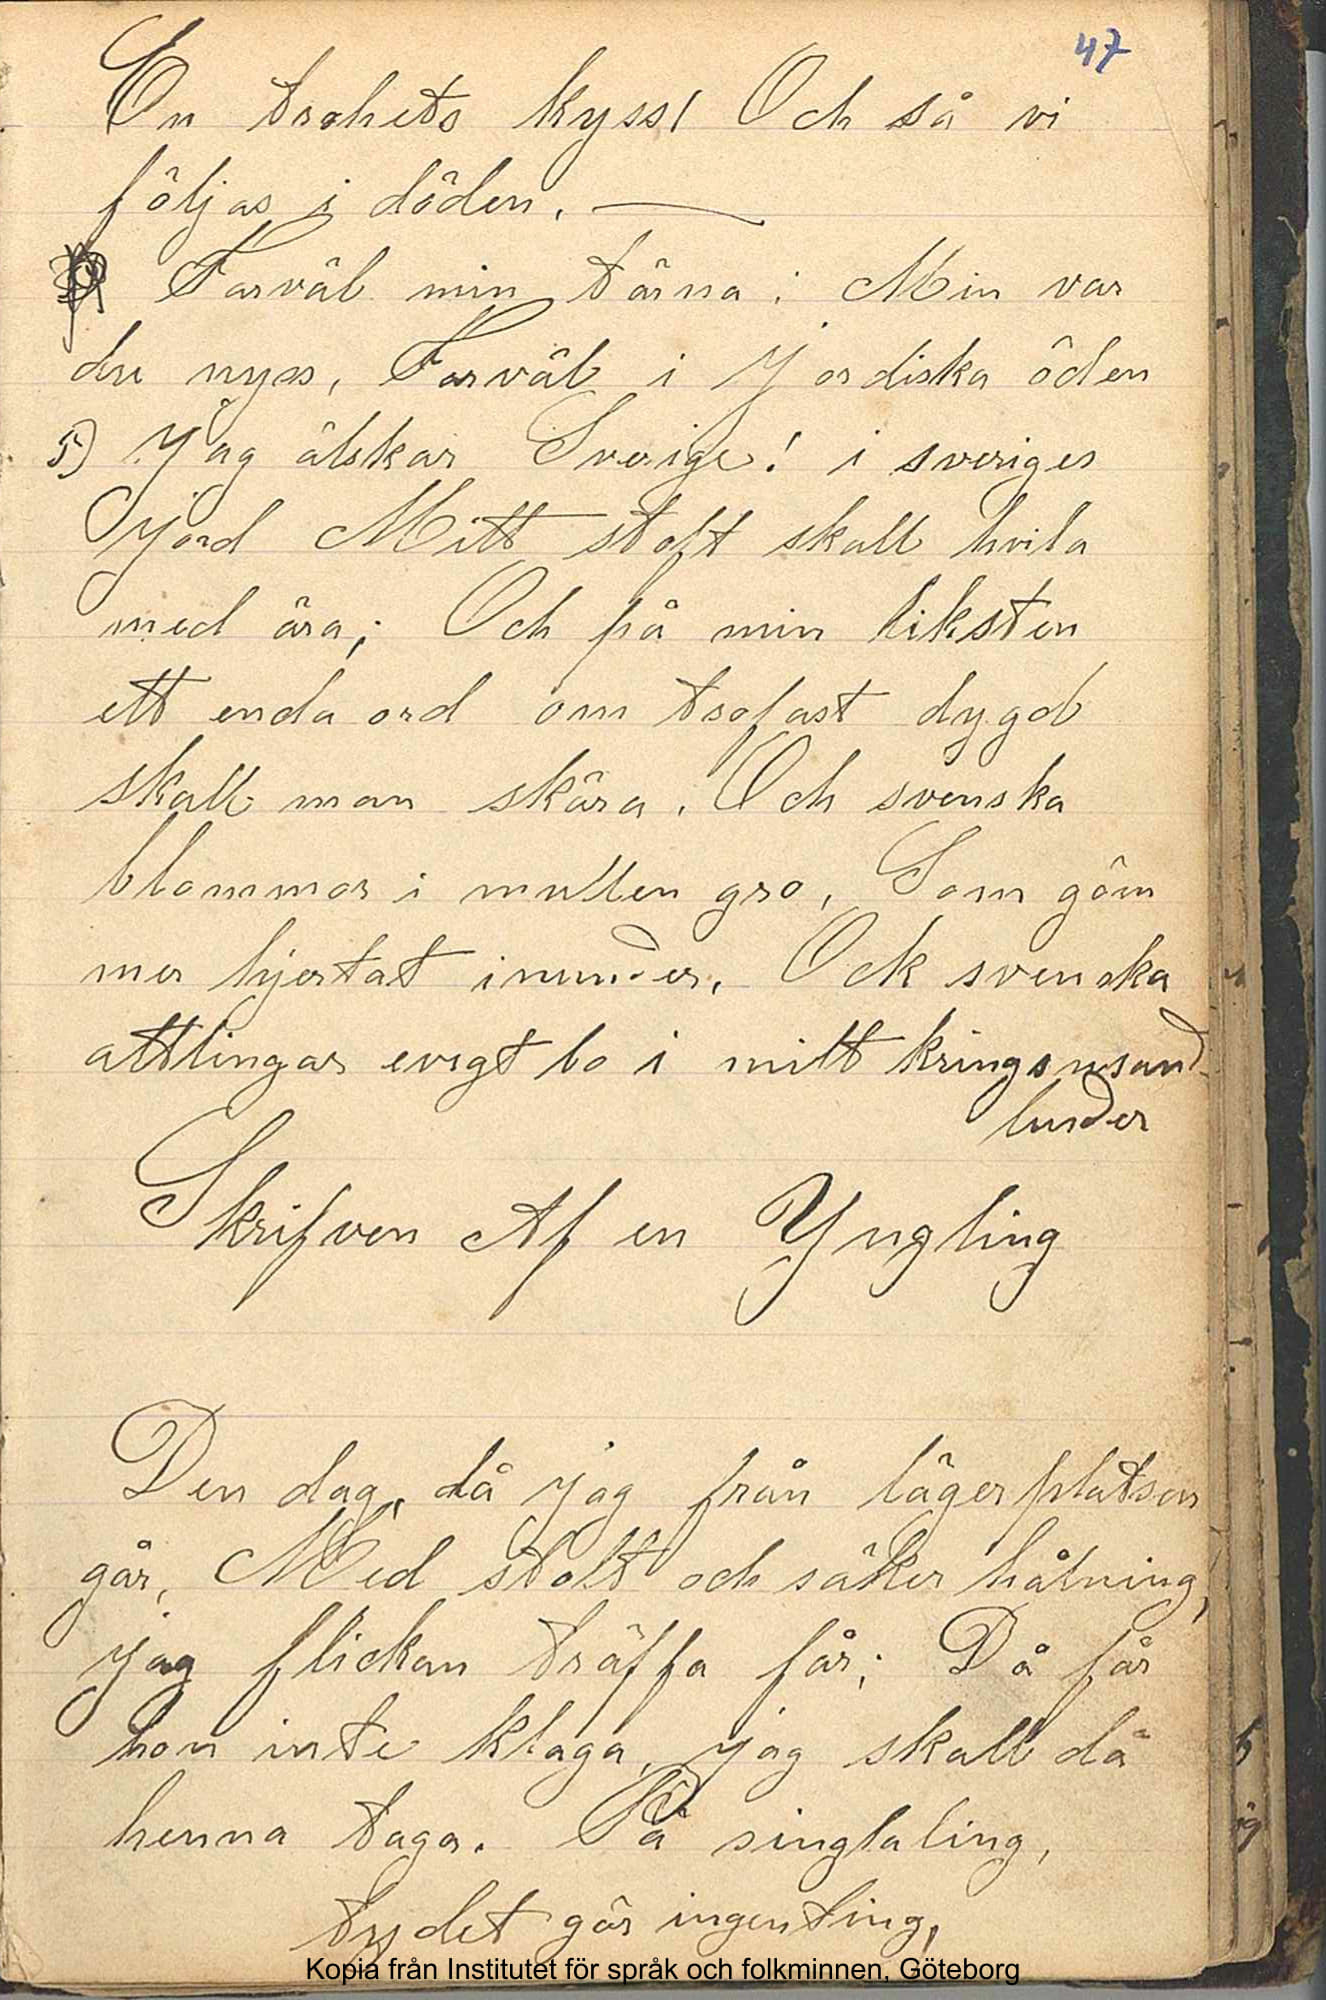 47
En trohets kyss! Och så vi
följas i döden. —
Farväl min tärna: Min var
du nyss, Farväl i Jordiska öden
5) Jag älskar Sverige! i sveriges
Jord Mitt stoft skall hvila
med ära; Och på min liksten
ett enda ord om trofast dygd
skall man skära. Och svenska
blommor i mullen gro, Som göm
mer hjertat inunder. Ock svenska
ättlingar evigt bo i mitt
lunder
Skrifven Af en Yngling
Den dag, då jag från lägerplatsen
går, Med stolt och säker hålning,
jag flickan träffa får; Då får
hon inte klaga, jag skall då
henna taga. På singlaling,
ty det gör ingenting,
Kopia från Institutet för språk och folkminnen, Göteborg